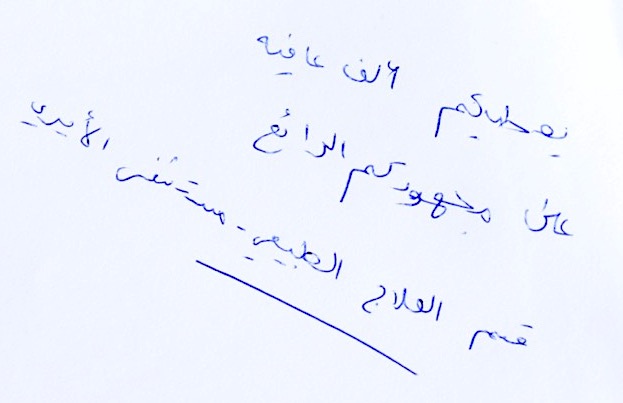 يعطيكم الف عافيه
على مجهودكم الرائع
قسم العلاج الطبيعي - مستشفى الأيدي